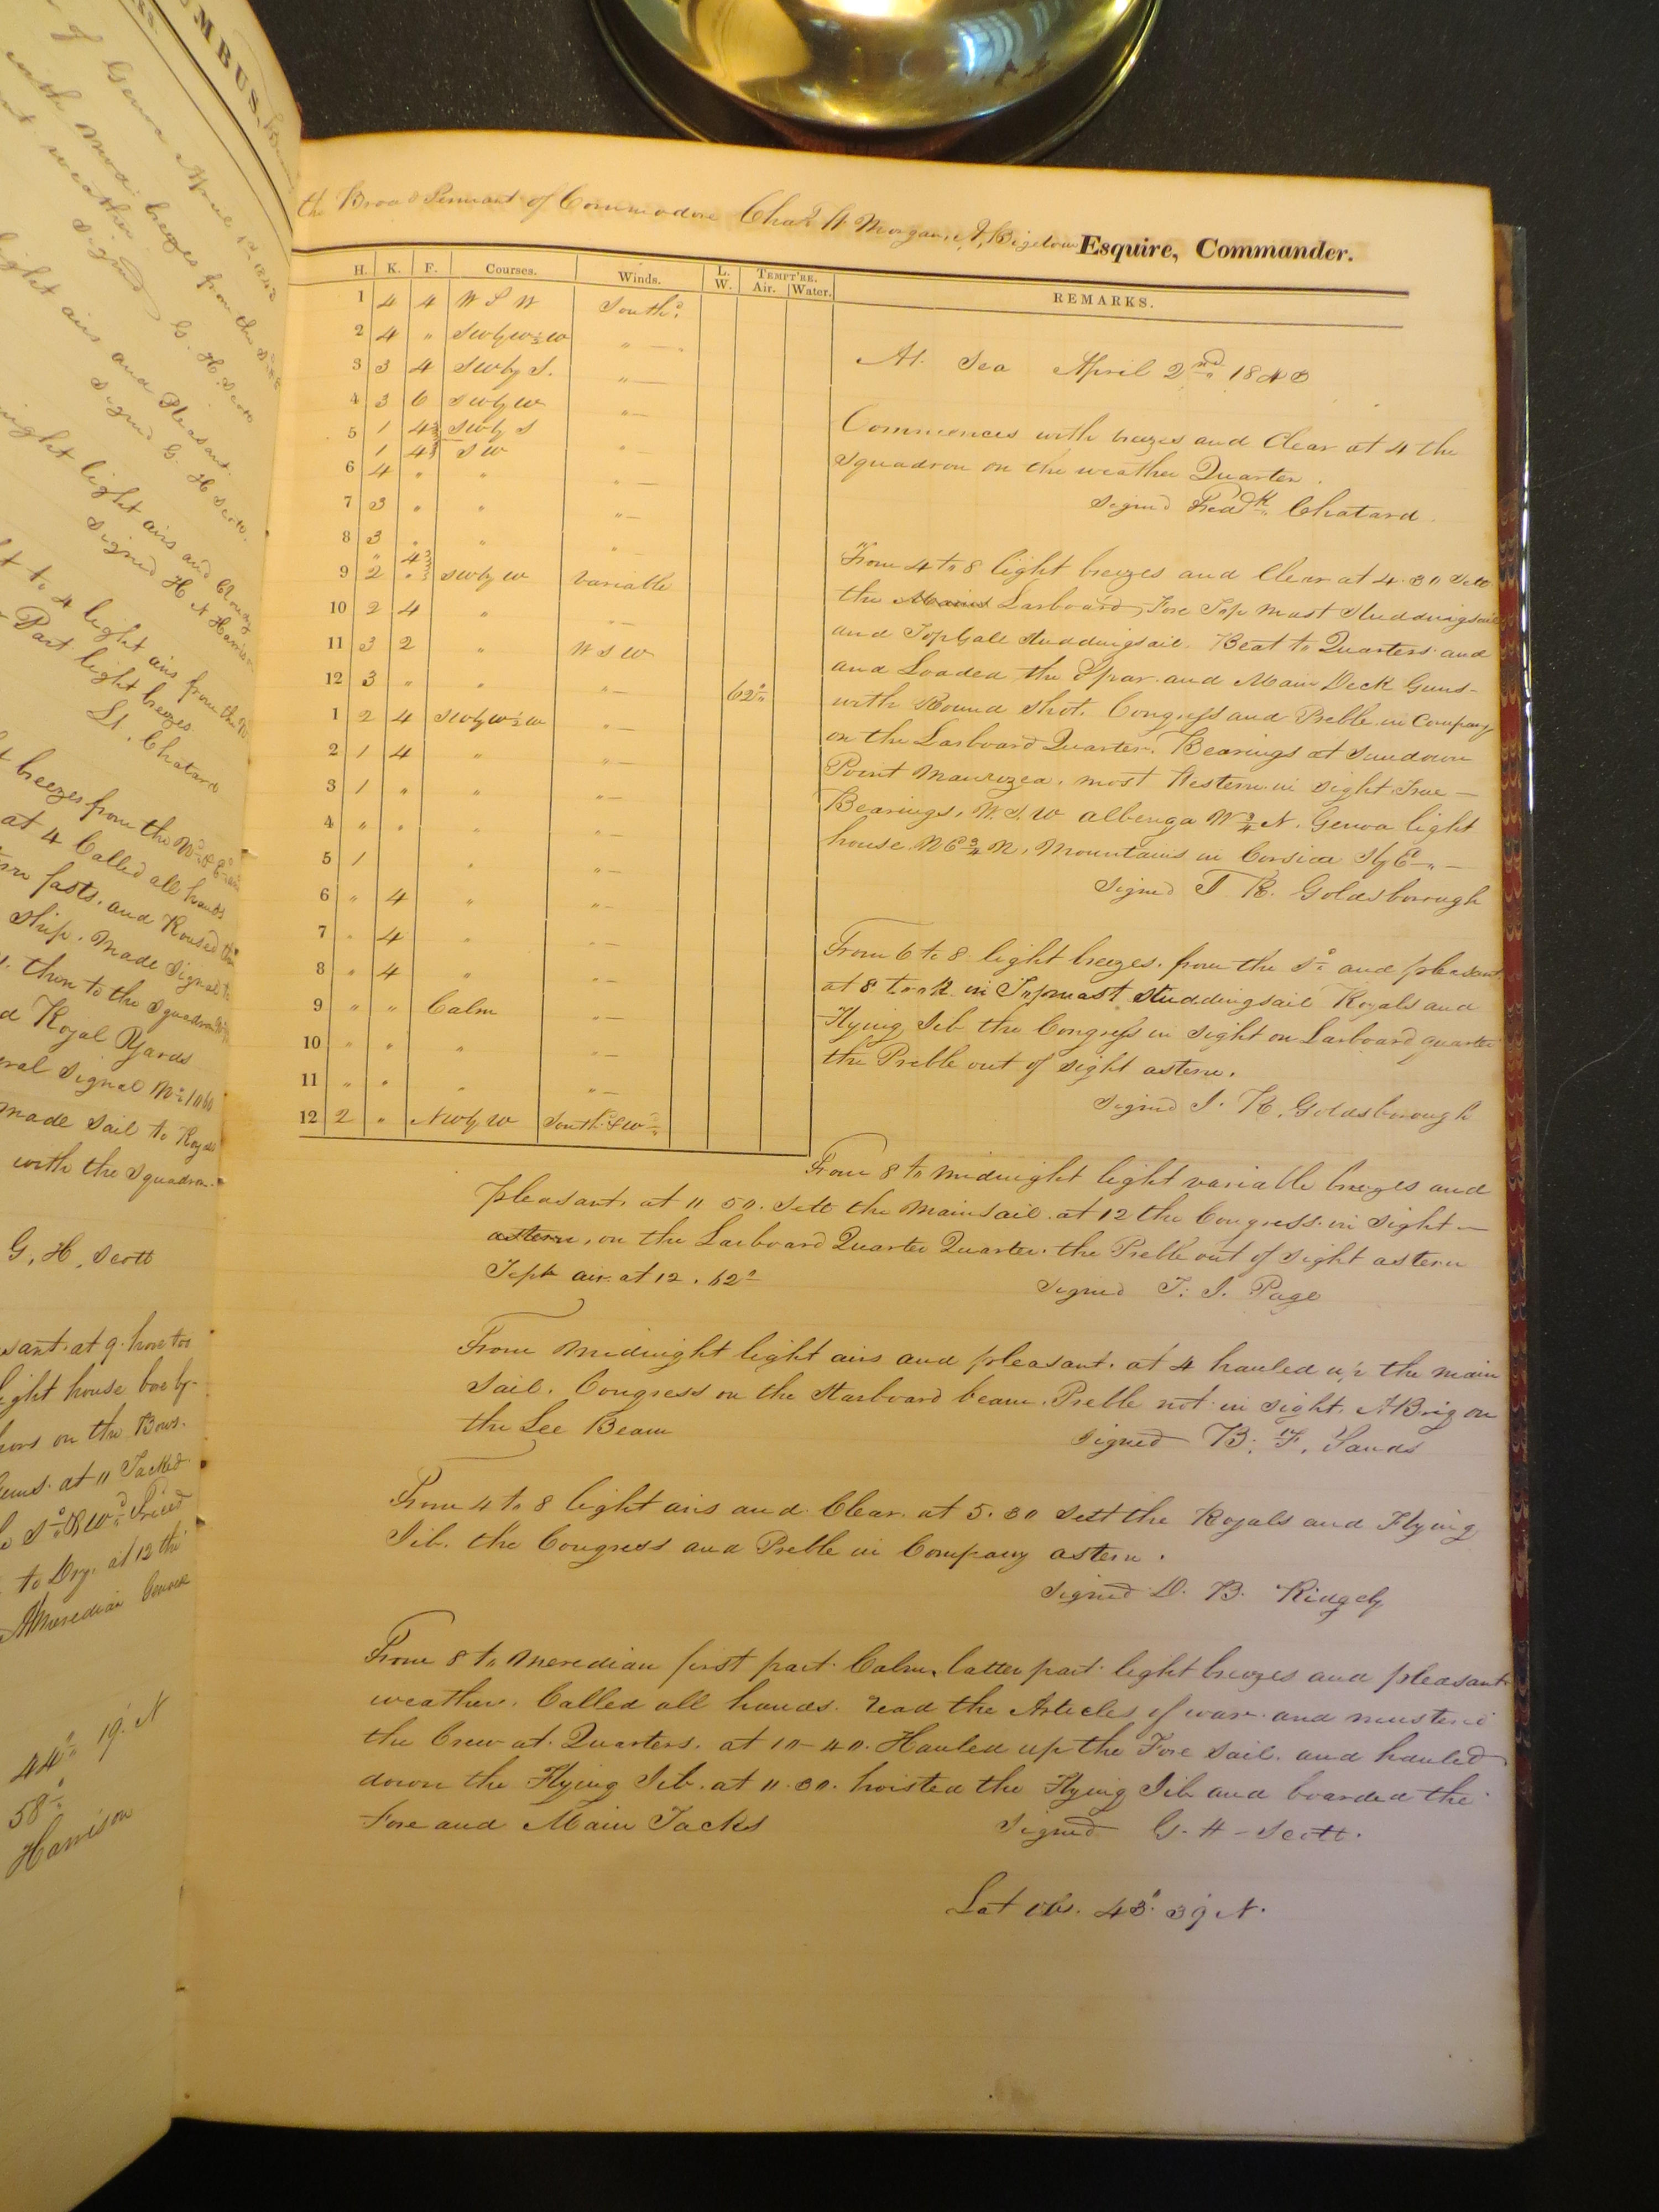 OMBUS,
of Genoa April 1st 1843
with mod. breezes from the
nt weather
Signed G. H. Scott
light airs and Pleasant.
Signed G. H Scott.
night light airs and Cloudy
Signed H N Harrison
t to 4 light airs from the N
Part light breezes.
Lt. Chatard
t breezes from the
at 4 Called all hands
rn fasts. and Roused the
Ship. Made Signal to
then to the Squadron
d Royal Yards
eral Signal No 1060
made Sail to Royals
with the Squadron.
G. H. Scott
sant. at 9. hove too
light house bore by
hors on the Bows.
at 11 Tacked
to Dry. at 12 the
Meredian
44° 19' N
58°
Harrison
the Broad Pennant of Commodore Chas. W Morgan, A, Bigelow Esquire, Commander.
H. K. F. Courses. Winds. L. W. TEMPT'RE. Air. Water. REMARKS.
1 4 4 W S W South d.
2 4 " SWbyW½W " —
3 3 4 SWby S. " —
4 3 6 SWby W " —
5 1 4 SWby S " —
1 4 S W
6 4 " " " —
7 3 " " " —
8 3 " " " —
" 4
9 2 " SWby W Variable
10 2 4 " " —
11 3 2 " W S W
12 3 " " " — 62°
1 2 4 SWbyW½W " —
2 1 4 " " —
3 1 " " " —
4 " " " " —
5 1 " " —
6 " 4 " " —
7 " 4 " " —
8 " 4 " " —
9 " " Calm " —
10 " " " " —
11 " " " " —
12 2 " NWby W South d & W d
At Sea April 2nd 1843
Commences with breezes and Clear at 4 the
Squadron on the weather Quarter.
Signed Fredk. Chatard.
From 4 to 8 light breezes and Clear at 4.30 Sett
the Mains Larboard, Fore Top Mast Studdingsail
and TopGall Studdingsail. Beat to Quarters and
and Loaded the Spar and Main Deck Guns —
with Round Shot. Congress and Preble in Company
on the Larboard Quarter. Bearings at Sundown
Point most Western in sight True —
Bearings, W.S.W albenga W ¾ N. Genoa light
house. NE ¾ N, Mountains in Corsica SbyE " —
Signed T. K. Goldsborough
From 6 to 8 light breezes. from the Sd. and pleasant
at 8 took in Topmast Studdingsail Royals and
Flying Jib the Congress in sight on Larboard quarter
the Preble out of sight astern.
Signed J. K. Goldsborough
From 8 to midnight light variable breezes and
pleasant. at 11 50. Sett the MainSail. at 12 the Congress. in sight —
astern, on the Larboard Quarter Quarter. the Preble out of sight astern
Tept air at 12. 62°
Signed T. J. Page
From Midnight light airs and pleasant. at 4 hauled up the main
Sail. Congress on the Starboard beam. Preble not in sight. A Brig on
the Lee Beam
Signed B. F. Sands
From 4 to 8 light airs and Clear. at 5.30 Sett the Royals and Flying
Jib. the Congress and Preble in Company astern.
Signed D. B. Ridgely
From 8 to Meredian first part Calm, latter part light breezes and pleasant
weather. Called all hands. read the Articles of war and mustered
the Crew at Quarters. at 10-40. Hauled up the Fore Sail. and hauled
down the Flying Jib. at 11.30. hoisted the Flying Jib and boarded the
Fore and Main Tacks
Signed G. H - Scott.
Lat Obs. 43° 39' N.